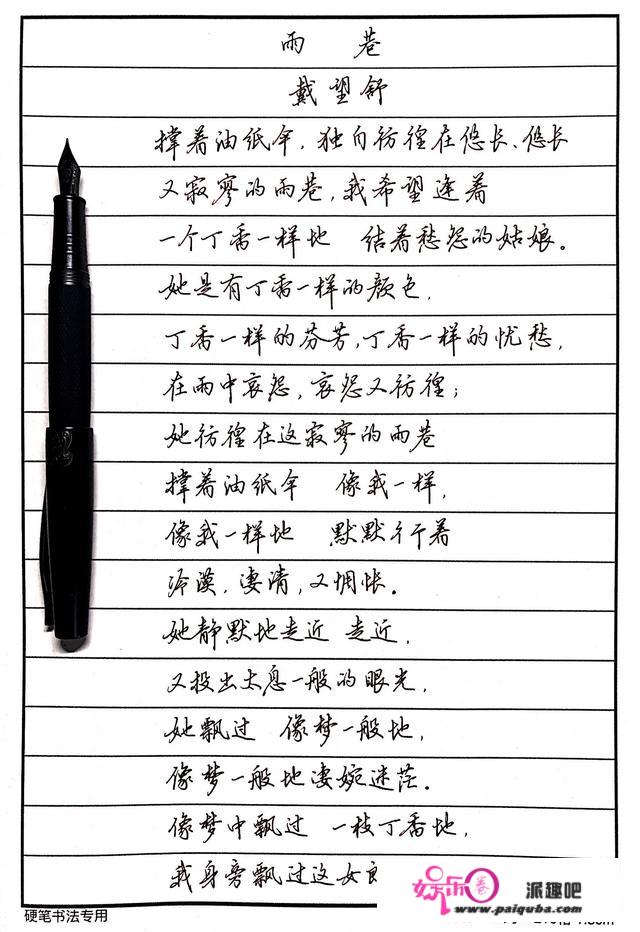 雨 巷
戴望舒
撑着油纸伞，独自彷徨在悠长、悠长
又寂寥的雨巷，我希望逢着
一个丁香一样地 结着愁怨的姑娘。
她是有丁香一样的颜色，
丁香一样的芬芳，丁香一样的忧愁，
在雨中哀怨，哀怨又彷徨；
她彷徨在这寂寥的雨巷
撑着油纸伞 像我一样，
像我一样地 默默彳亍着
冷漠，凄清，又惆怅。
她静默地走近 走近，
又投出太息一般的眼光，
她飘过 像梦一般地，
像梦一般地凄婉迷茫。
像梦中飘过 一枝丁香地，
我身旁飘过这女郎
硬笔书法专用
娱乐圈 派趣吧
www.paiquba.com